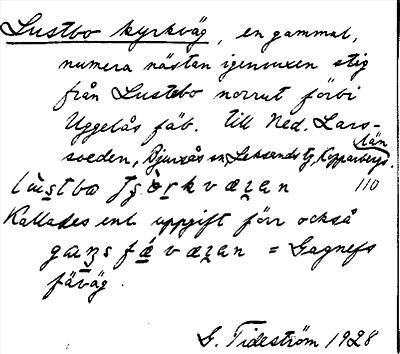 Lustbo kyrkväg, en gammal,
numera nästan igenvuxen stig
från Lustebo norrut förbi
Uggelås fäb. till Ned. Lars-
soeden, Djurås sn, Leksands tg, Kopparbergs län.
110
Kallades enl. uppgift förr också
= Gagnefs
fäväg.
G. Tideström 1928